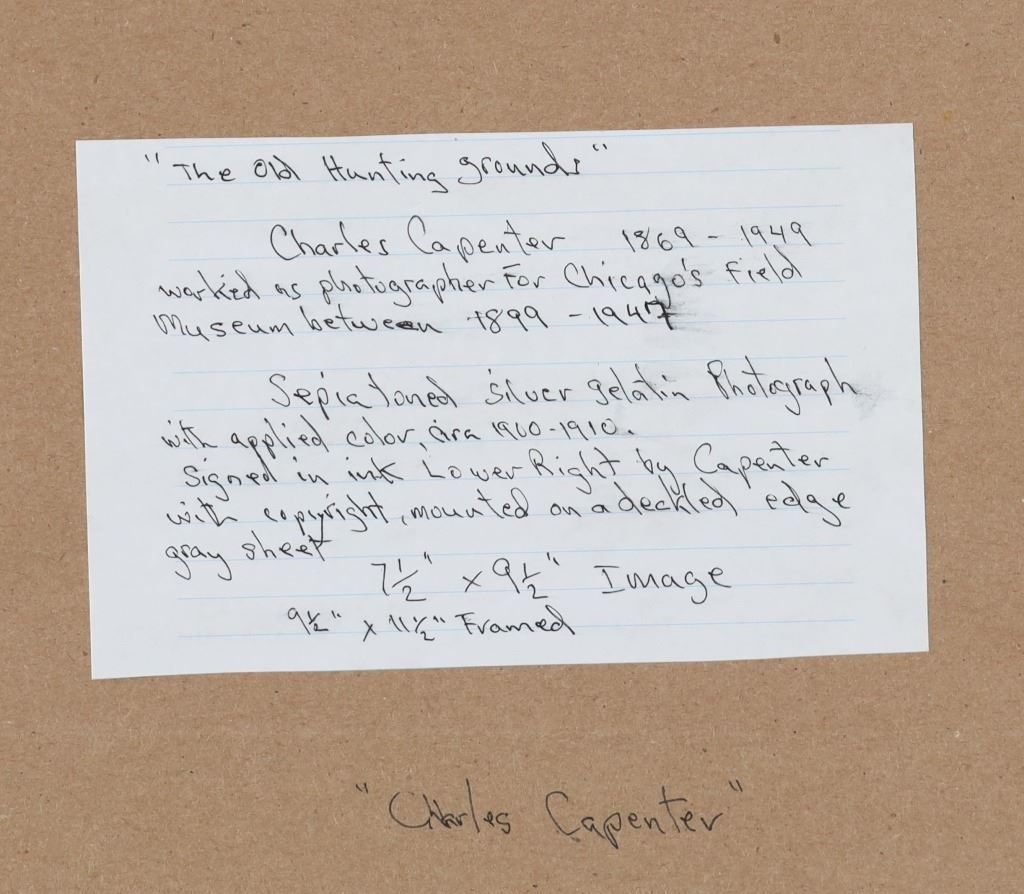 "The Old Hunting grounds"
Charles Capenter 1869 - 1949
worked as photographer For Chicago's Field
Museum between 1899 - 1947
Sepia toned silver gelatin Photograph
with applied color, cira 1900-1910.
Signed in ink Lower Right by Capenter
with copyright, mounted on a deckled edge
gray sheet
7 1/2" x 9 1/2" Image
9 1/2" x 11 1/2" Framed
"Charles Capenter"